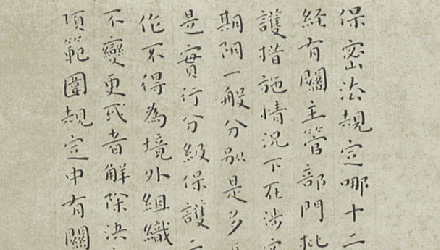 保密法規定哪十二
經有關主管部門批
護措施情況下在涉密
期限一般分別是多
是實行分級保護
作不得為境外組織
不變更或者解除決
項範圍規定中有關